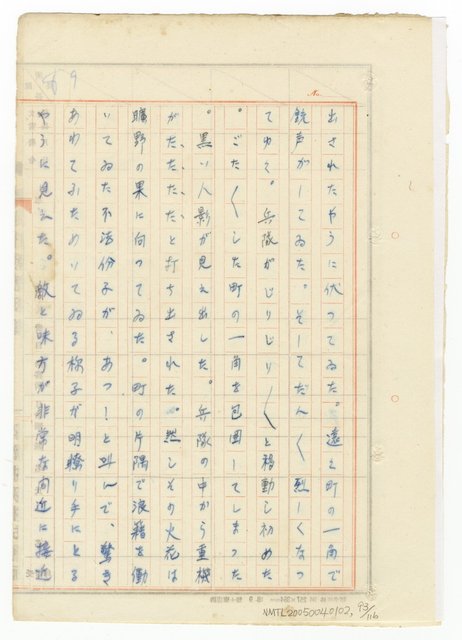 出されたやうに伏つてゐた。遠く町の一角で
銃声がしてゐた。そしてだん〱烈しくなつ
てゆく。兵隊がじりじり〱と移動し初めた
。ごた〱した町の一角を包囲してしまつた
。黒い人影が見え出した。兵隊の中から重機
がたたたたと打ち出された。然しその火花は
曠野の果に向つてゐた。町の片隅で浪籍を働
いてゐた不法份子が、あつ!と叫んで、驚き
あわてふためいてゐる様子が明瞭り手にとる
やうに見えた。敵と味方が非常な間近に接近
No.
9
NMTL20050040102, 93/116